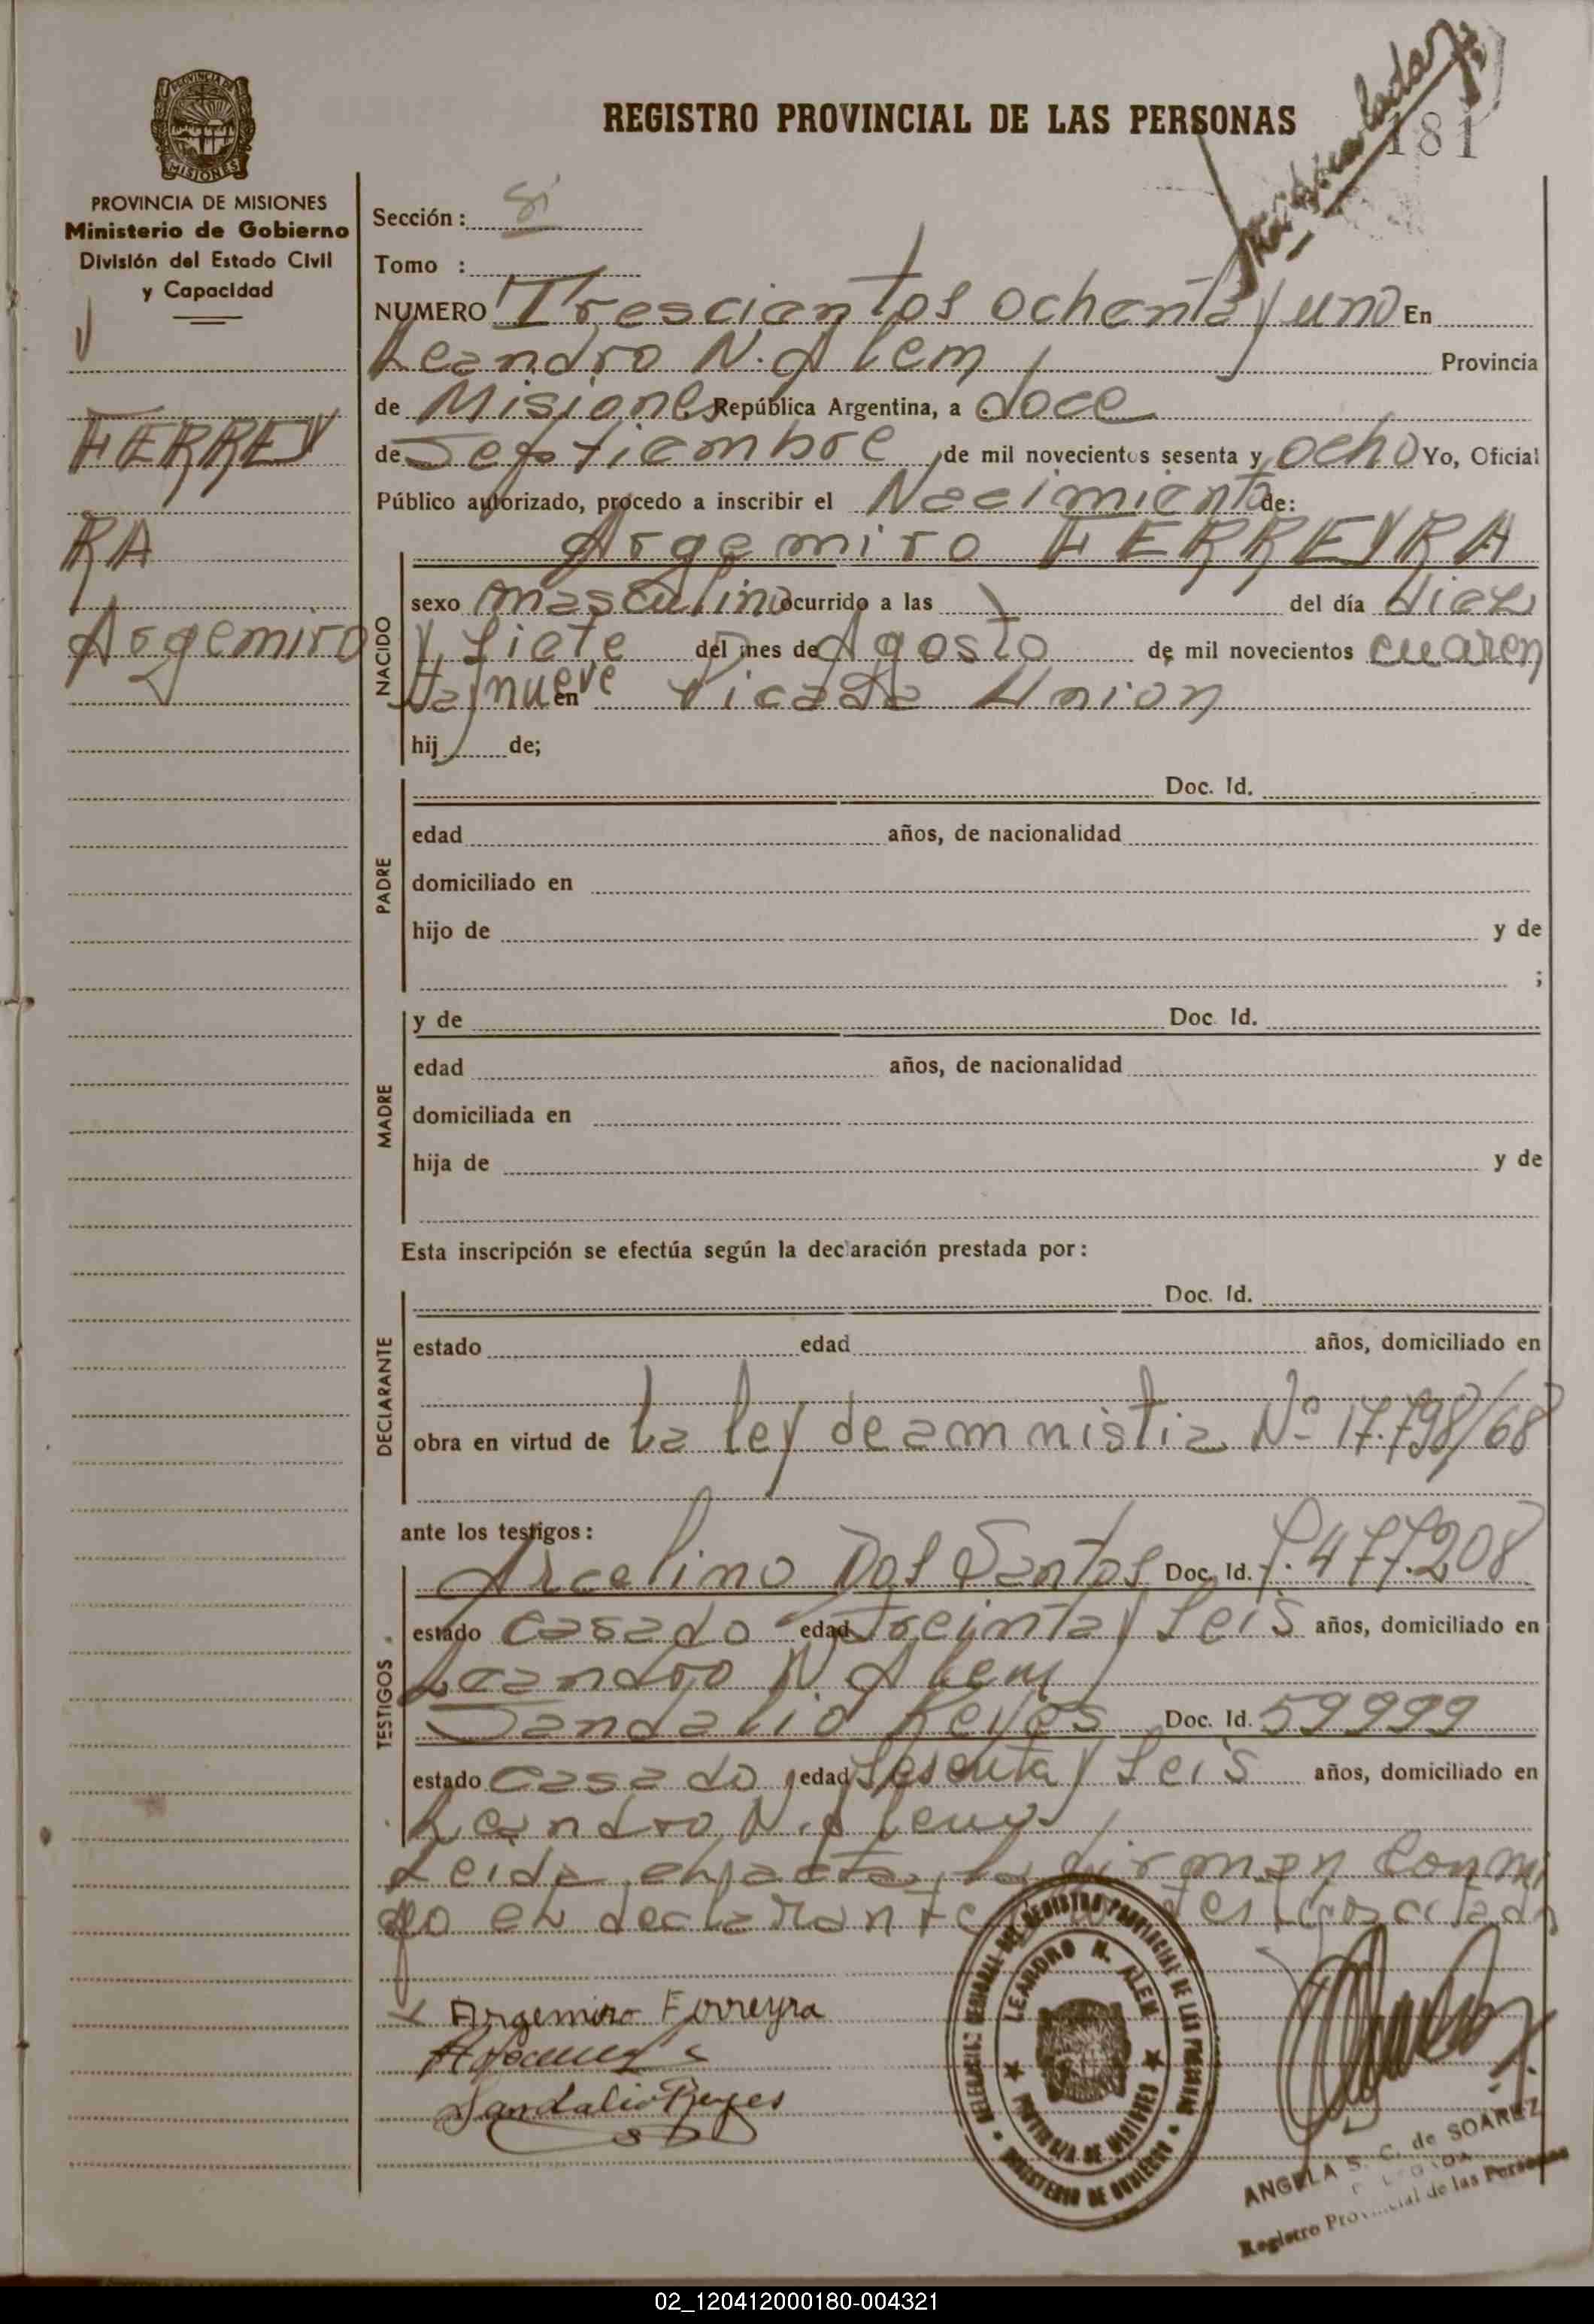 REGISTRO PROVINCIAL DE LAS PERSONAS
181
PROVINCIA DE MISIONES
MISIONES
PROVINCIA DE MISIONES
Ministerio de Gobierno
División del Estado Civil
y Capacidad
FERREY
RA
Argemiro
Sección :
Tomo :
NUMERO Trescientos ochenta y uno En
Leandro N. Alem Provincia
de Misiones República Argentina, a doce
de Septiembre de mil novecientos sesenta y ocho Yo, Oficial
Público autorizado, procedo a inscribir el Nacimiento de:
Argemiro FERREYRA
NACIDO
sexo masculino ocurrido a las del día diez
y siete del mes de Agosto de mil novecientos cuaren
ta y nueve en Picada Union
hij de;
PADRE
Doc. Id.
edad años, de nacionalidad
domiciliado en
hijo de y de
;
MADRE
y de Doc. Id.
edad años, de nacionalidad
domiciliada en
hija de y de
Esta inscripción se efectúa según la declaración prestada por:
DECLARANTE
Doc. Id.
estado edad años, domiciliado en
obra en virtud de la ley de amnistia Nº 17.798/68
ante los testigos:
TESTIGOS
Arcelino Dos Santos Doc. Id. 7.477.208
estado casado edad Treinta y Seis años, domiciliado en
Leandro N Alem
Sandalio Reyes Doc. Id. 59999
estado casado edad Sesenta y Seis años, domiciliado en
Leandro N. Alem
Leida el acta, la firman conmi
go el declarante testigos citados
Argemiro Ferreyra
Sandalio Reyes
REGISTRO PROVINCIAL DE LAS PERSONAS
LEANDRO N. ALEM
PROVINCIA DE MISIONES
MINISTERIO DE GOBIERNO
ANGELA S. C. de SOAREZ
Registro Provincial de las Personas
02_120412000180-004321